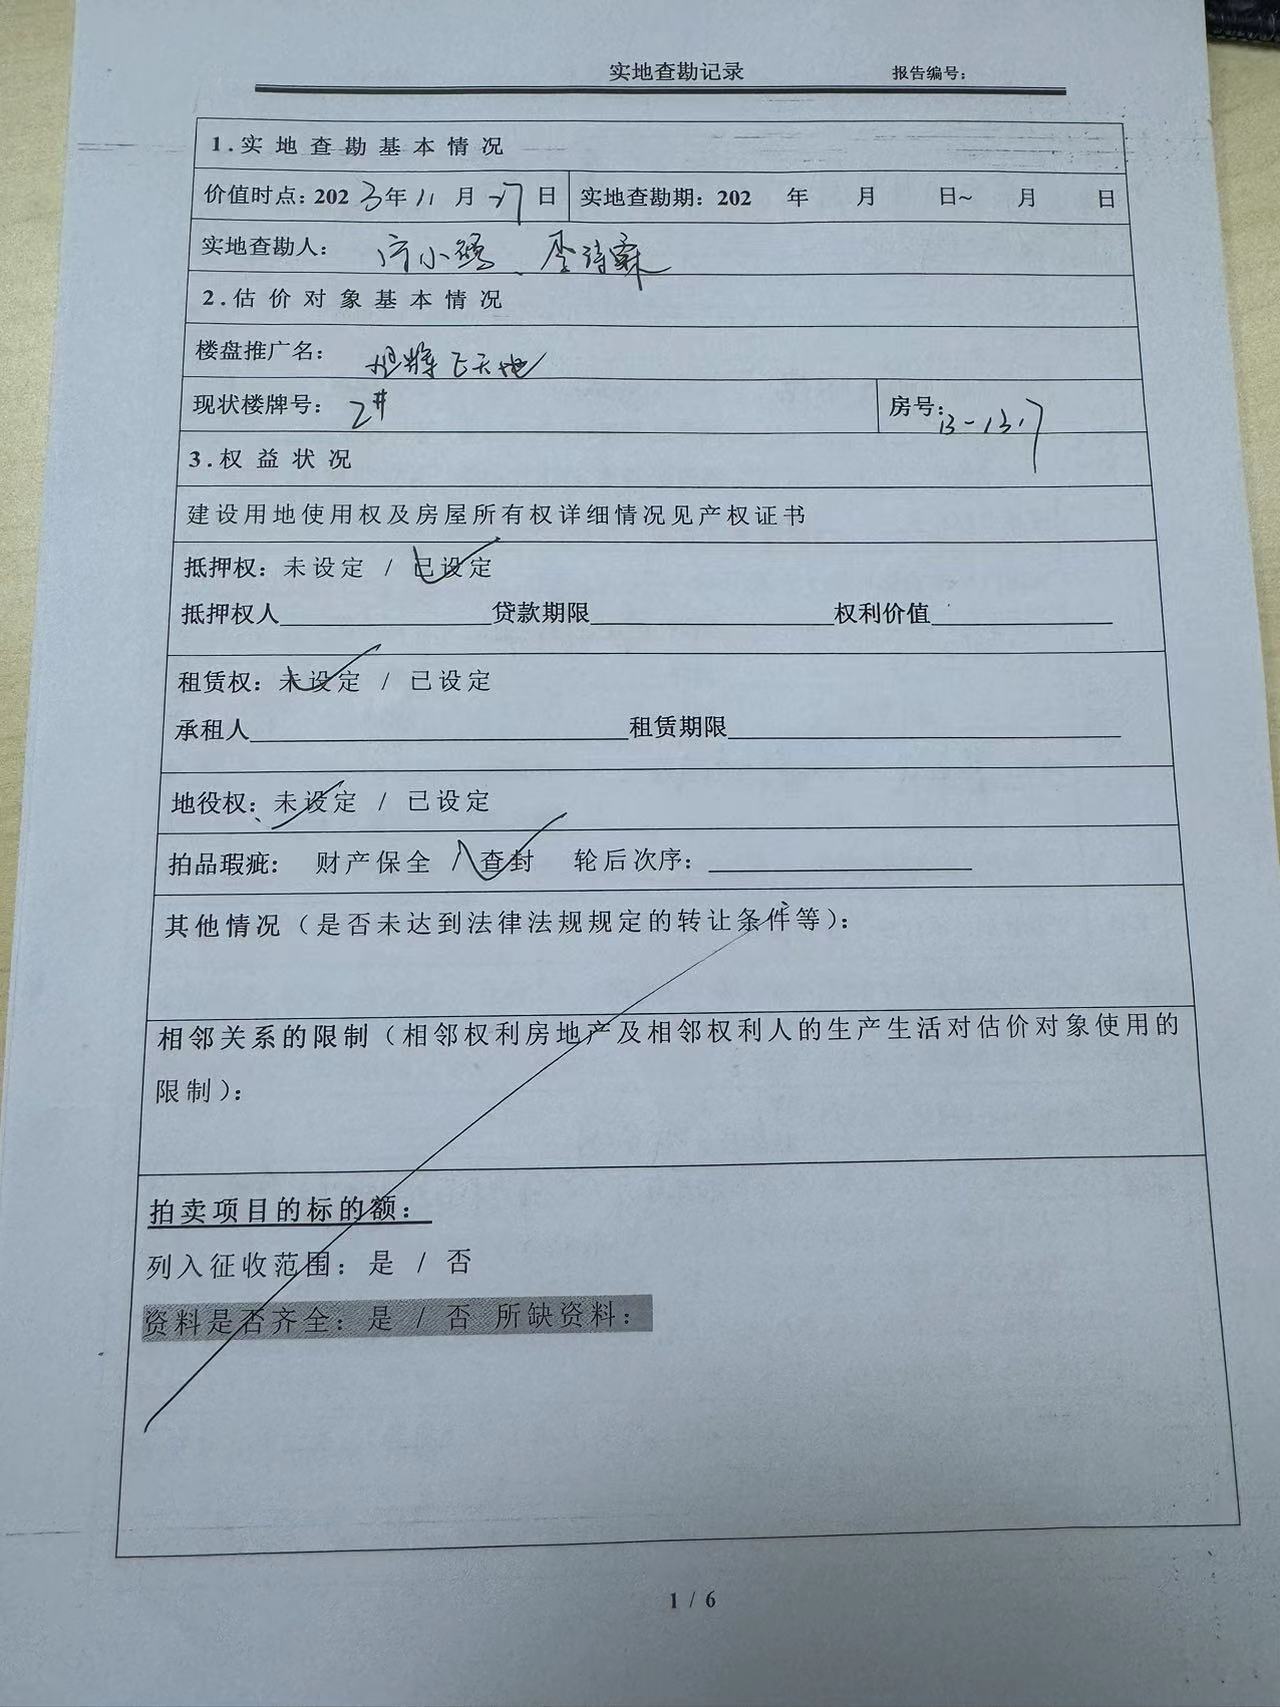 实地查勘记录 报告编号：
1.实地查勘基本情况
价值时点：2023年11月27日 实地查勘期：202 年 月 日~ 月 日
实地查勘人：
2.估价对象基本情况
楼盘推广名： 天地
现状楼牌号： 2# 房号：13-13.17
3.权益状况
建设用地使用权及房屋所有权详细情况见产权证书
抵押权：未设定 / 已设定
抵押权人 贷款期限 权利价值
租赁权：未设定 / 已设定
承租人 租赁期限
地役权：未设定 / 已设定
拍品瑕疵： 财产保全 / 查封 轮后次序：
其他情况（是否未达到法律法规规定的转让条件等）：
相邻关系的限制（相邻权利房地产及相邻权利人的生产生活对估价对象使用的
限制）：
拍卖项目的标的额：
列入征收范围：是 / 否
资料是否齐全：是 / 否 所缺资料：
1 / 6